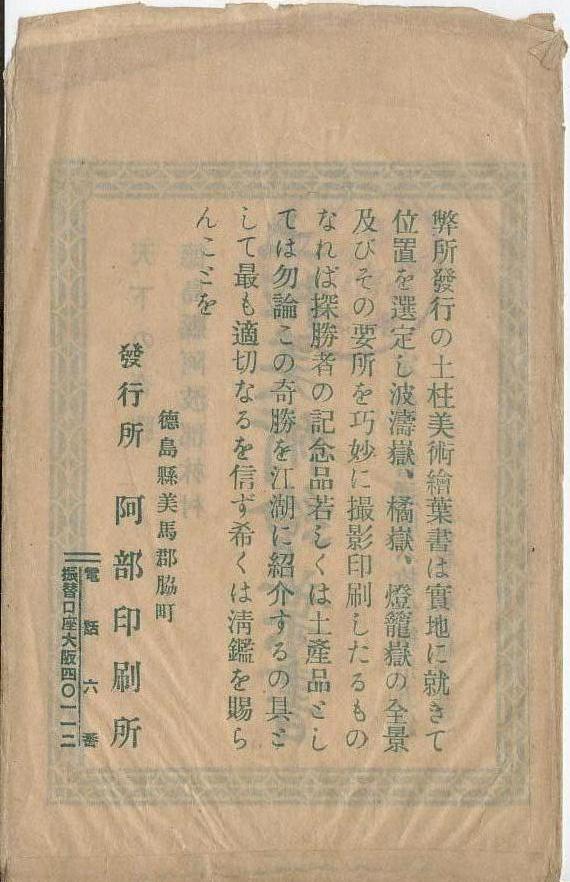 弊所發行の土柱美術繪葉書は實地に就きて
位置を選定し波濤嶽、橘嶽、燈籠嶽の全景
及びその要所を巧妙に撮影印刷したるもの
なれば探勝者の記念品若しくは土產品とし
ては勿論この奇勝を江湖に紹介するの具と
して最も適切なるを信ず希くは淸鑑を賜ら
んことを
德島縣美馬郡脇町
發行所 阿部印刷所
電話六番
振替口座大阪四〇一一二